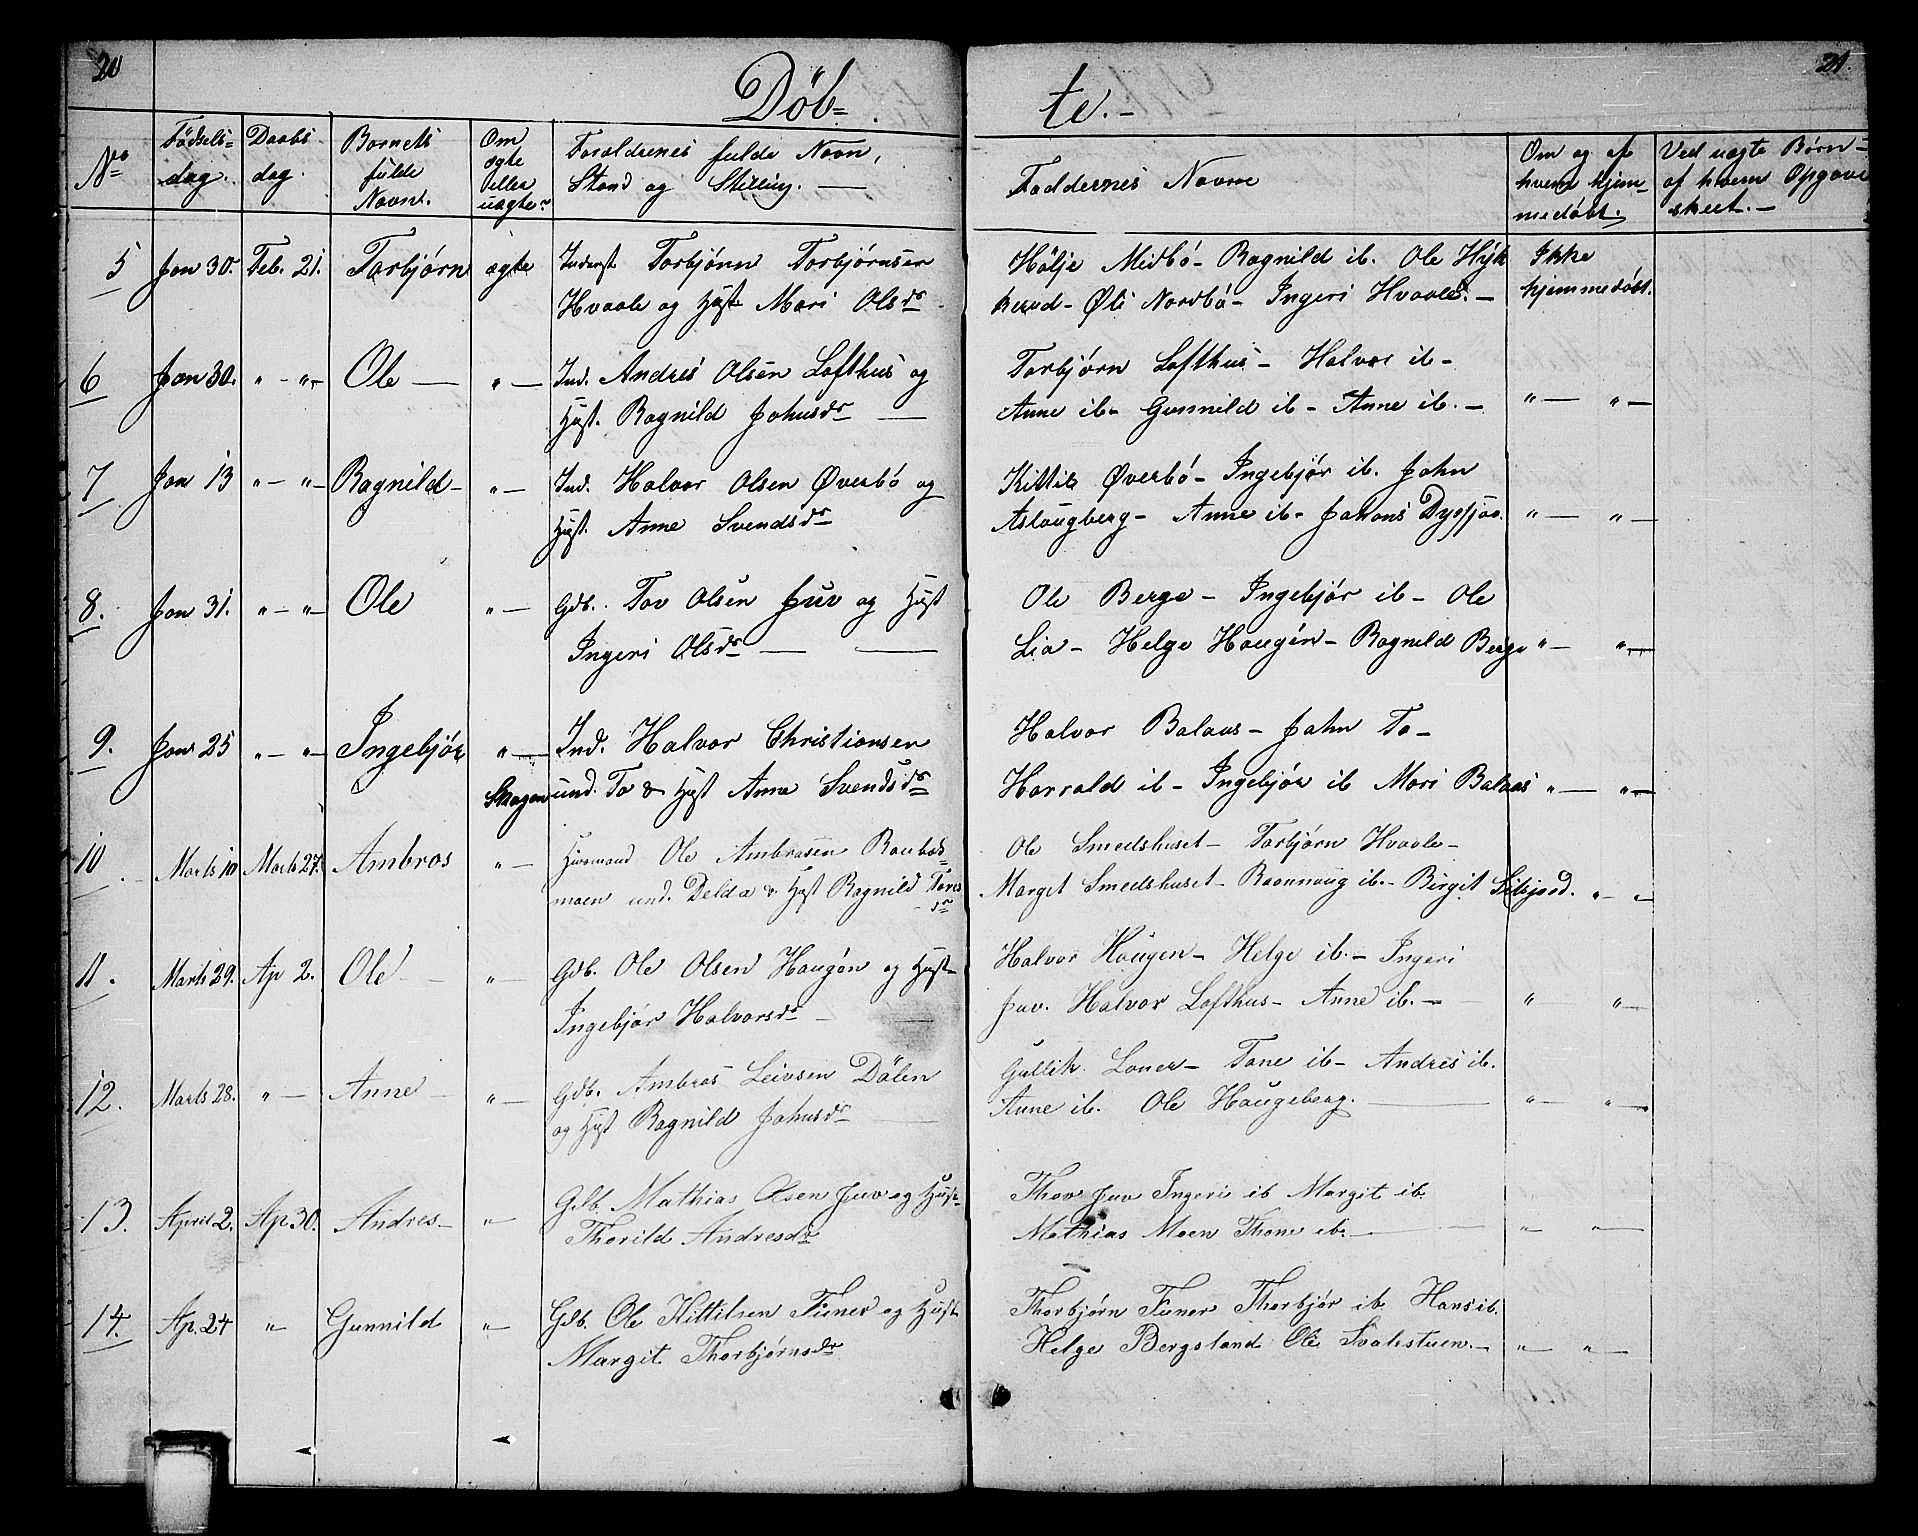 20
21.
Döb= te.-
No
Födsels= dag.
Daabs dag.
Barnets fulde Navn.
Om ægte eller uægte
Foraldrenes fulde Navn, Stand og Stilling. —
Faddernes Navne
Om og af hvem hjem- medöbt.
Ved uægte Børn- af hvem Opgave skeet.-
5 Jan 30. Feb. 21. Torbjørn ægte Inderst Torbjönn Torbjörnsen
Hvaale og Hust Mari Olsdr
Hölje Midbö- Ragnild ib. Ole
Nordbö- Ingeri Hvaale. -
Ikke hjemmedöbt.
6 Jan 30. " - " - Ole — " — Ind. Andres Olsen Lofthus og
Hust. Ragnild Johnsdr —
Torbjørn Lofthus- Halvor ib-
Anne ib- Gunnild ib- Anne ib. - " — " —
7 Jan 13 " - " - Ragnild- " — Ind. Halvor Olsen Øverbö og
Hust. Anne Svendsdr
Kittil Øverbö- Ingebjör ib. John
Aslaugberg- Anne ib- " — " —
8. Jan 31. " - " - Ole " — Gdb. Tov Olsen Juv og Hust
Ingeri Olsdr — —
Ole Berge- Ingebjör ib- Ole
Lia- Helge Haugen- Ragnild Berge " — " —
9. Jan 25 " - " - Ingebjör " — Ind. Halvor Christiansen
Skogen und. To & Hust Anne Svendsdr
Halvor Balaas- John To-
Harrald ib- Ingebjör ib Mari Balaas " — " —
10 Marts 10 Marts 27. Ambros " — Husmand Ole Ambrosen
moen und. Delda & Hust Ragnild Toresdr
Ole Smedshuset- Torbjørn Hvaale-
Marget Smedshuset- Raannaug ib.- Birgit " — "
11. Marts 29. Ap 2. Ole — " — Gdb. Ole Olsen Haugen og Hust-
Ingebjör Halvorsdr —
Halvor Haugen- Helge ib.- Ingeri
Juv. Halvor Lofthus- Anne ib. — " " —
12. Marts 28. " — Anne — " — Gdb. Ambros Leivsen Dölen
og Hust Ragnild Johnsdr —
Gullik Loner- Tone ib- Andres ib.
Anne ib. Ole Haugeberg. — " — " —
13. April 2. Ap 30. Andres- " — Gdb. Mathias Olsen Juv og Hust-
Thorild Andresdr
Thov Juv Ingeri ib Margit ib.
Mathias Moen Thone ib. — " — " —
14. Ap. 24 " Gunnild " — Gdb. Ole Kittilsen Finner og Hust
Margit Thorbjørnsdr
Thorbjørn Finner Thorbjör ib. Hans ib.
Helge Bergsland Ole Svalestuen.- " — " —